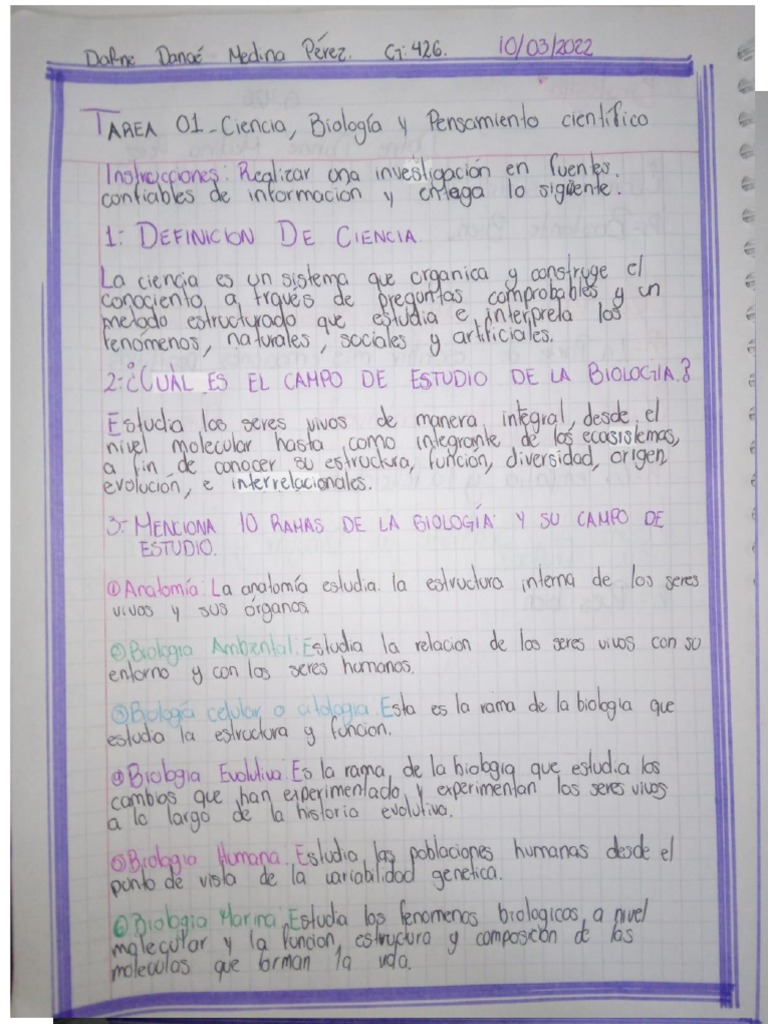 Dafne Danaé Medina Pérez. G: 426. 10/03/2022
TAREA 01_Ciencia, Biología y Pensamiento científico
Instrucciones: Realizar una investigación en fuentes.
confiables de informacion y entega lo sigüente:
1: DEFINICION DE CIENCIA.
La ciencia es un sistema que organica y construye el
conociento, a trqués de preguntas comprobables y un
metodo estructurado que estudia e interpreta los
fenomenos, naturales, sociales y artificiales.
2: ¿CUÁL ES EL CAMPO DE ESTUDIO DE LA BIOLOGÍA?
Estudia los seres vivos de manera integral, desde el
nivel molecular hasta como integrante de los ecosistemas,
a fin de conocer su estructura, función, diversidad, origen
evolución, e interrelacionales.
3: MENCIONA 10 RAMAS DE LA BIOLOGÍA Y SU CAMPO DE
ESTUDIO.
① Anatomía: La anatomía estudia la estructura interna de los seres
vivos y sus órganos.
② Biologia Ambiental: Estudia la relacion de los seres vivos con su
entorno y con los seres humanos.
③ Biología celular o citologia: Esta es la rama de la biologia que
estudia la estructura y funcion.
④ Biologia Evolutiva: Es la rama, de la biologia que estudia los
cambios que han experimentado, y experimentan los seres vivos
a lo largo de la historia evolutiva.
⑤ Biologia Humana: Estudia, las poblaciones humanas desde el
punto de vista de la variabilidad genetica.
⑥ Biologia Marina: Estudia los fenomenos biologicos, a nivel
molecular y la funcion, estructura y composición de las
moleculas que forman la vida.